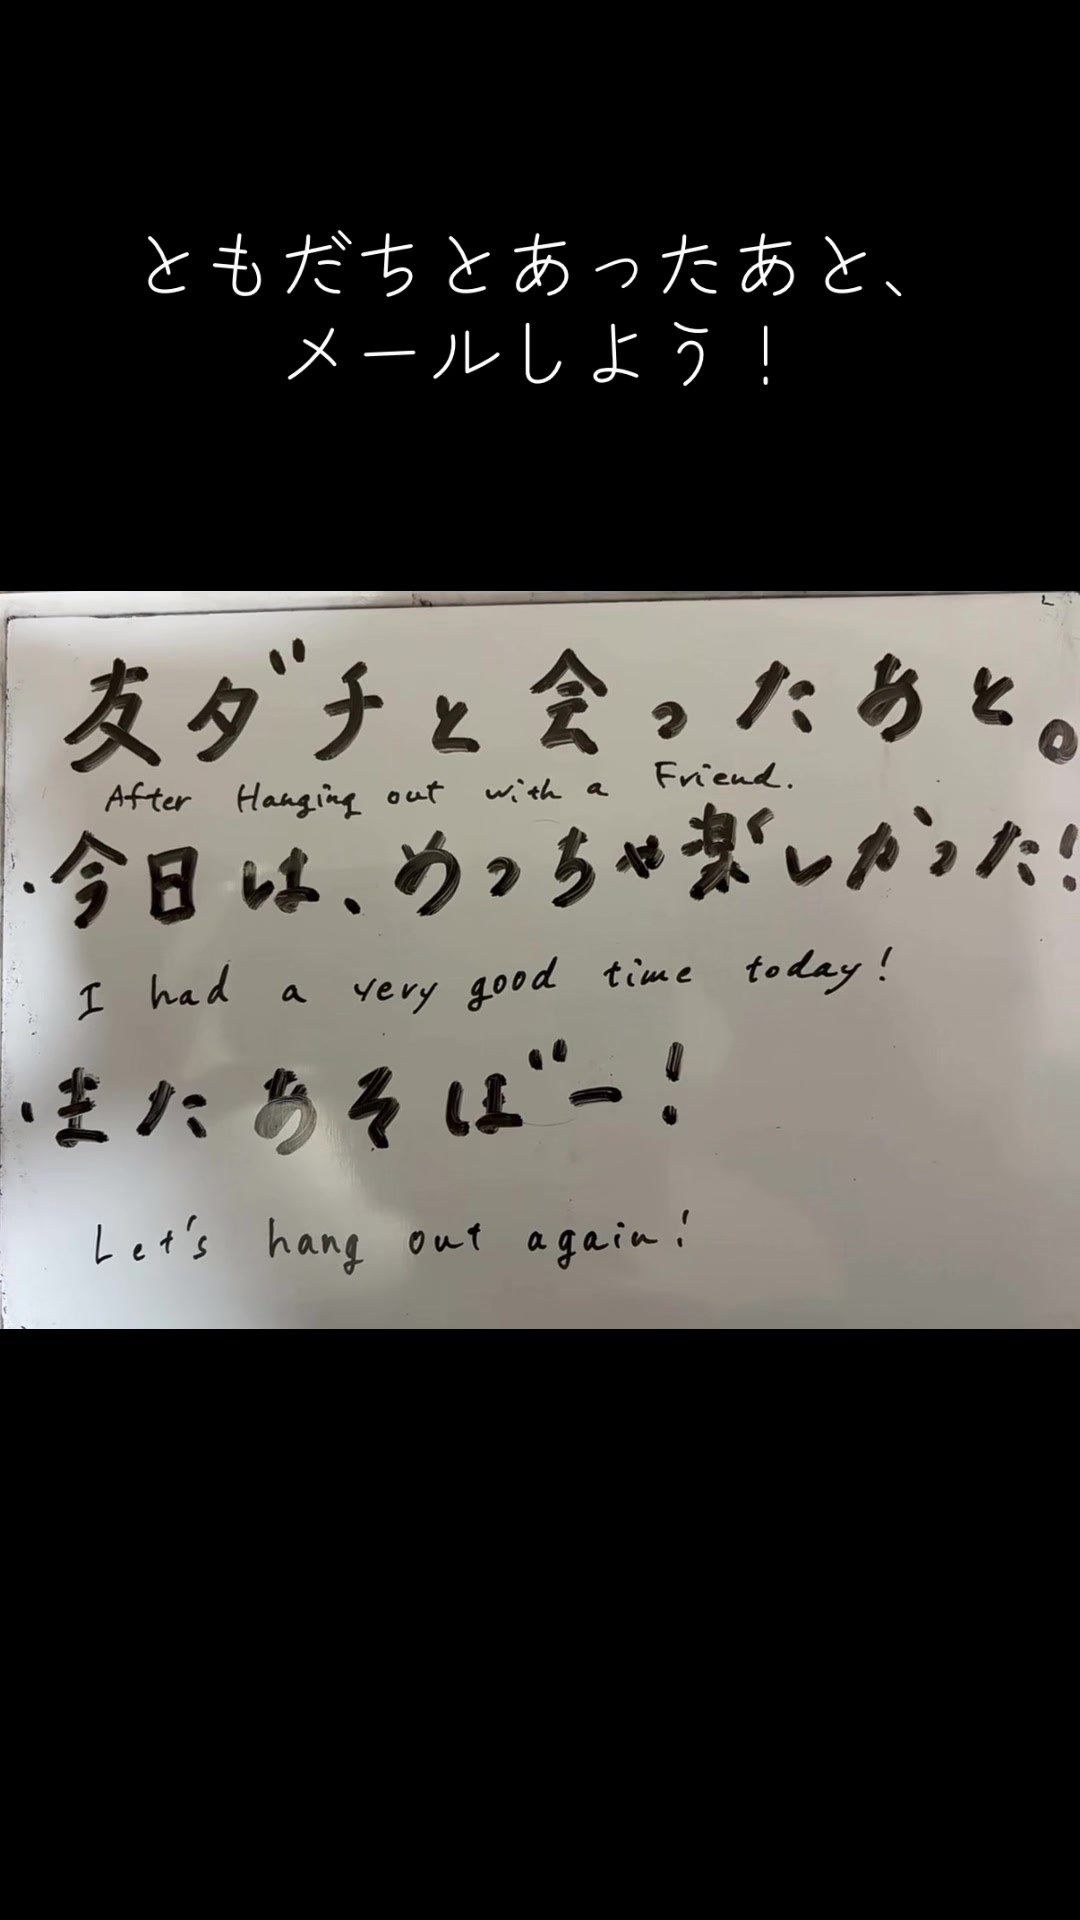 ともだちとあったあと、
メールしよう！
友ダチと会ったあと。
After Hanging out with a Friend.
・今日は、めっちゃ楽しかった！
I had a very good time today!
・またあそばー！
Let's hang out again!